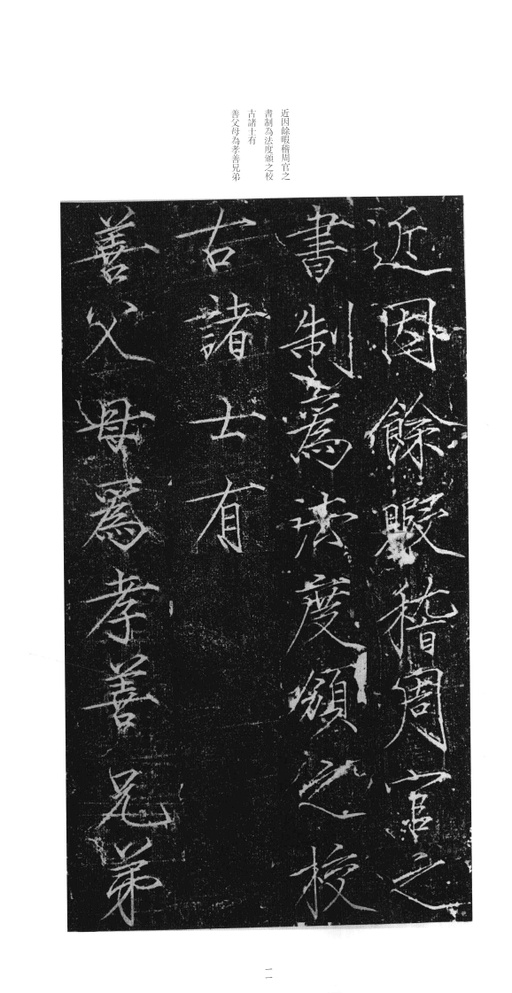 近因餘暇稽周官之
書制為法度頒之校
古諸士有
善父母為孝善兄弟
近因餘暇稽周官之
書制爲法度頒之校
古諸士有
善父母爲孝善兄弟
一一